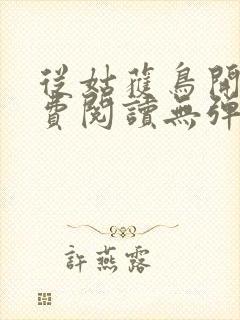 從姑獲鳥開
費閱讀無彈
許燕露